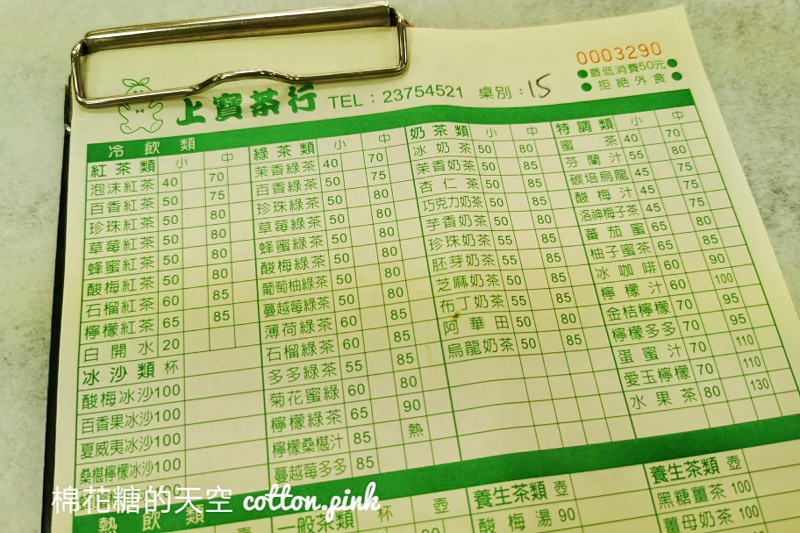 0003290
上寶茶行 TEL:23754521 桌別:15
●最低消費50元●
●拒絕外食●
冷飲類
紅茶類 小 中
泡沫紅茶 40 70
百香紅茶 50 75
珍珠紅茶 50 80
草莓紅茶 50 80
蜂蜜紅茶 50 80
酸梅紅茶 50 80
石榴紅茶 60 85
檸檬紅茶 65 85
白開水 20
冰沙類 杯
酸梅冰沙 100
百香果冰沙 100
夏威夷冰沙 100
桑椹檸檬冰沙 100
綠茶類 小 中
茉香綠茶 40 70
百香綠茶 50 75
珍珠綠茶 50 80
草莓綠茶 50 80
蜂蜜綠茶 50 80
酸梅綠茶 50 80
葡萄柚綠茶 50 80
蔓越莓綠茶 50 80
薄荷綠茶 60 85
石榴綠茶 60 85
多多綠茶 55 85
菊花蜜綠 60 80
檸檬綠茶 65 90
檸檬桑椹汁 85 熱
蔓越莓多多 85
奶茶類 小 中
冰奶茶 50 80
茉香奶茶 50 80
杏仁茶 50 80
巧克力奶茶 50 80
芋香奶茶 50 80
珍珠奶茶 55 85
胚芽奶茶 55 85
芝麻奶茶 55 85
布丁奶茶 55 85
阿華田 50 80
烏龍奶茶 50 85
特調類 小 中
蜜茶 40 70
芬蘭汁 55 80
碳培烏龍 45 75
酸梅汁 45 75
洛神梅子茶 45 75
蕃茄蜜 65 80
柚子蜜茶 65 85
冰咖啡 60 90
檸檬汁 60 100
金桔檸檬 70 100
檸檬多多 70 95
蛋蜜汁 70 110
愛玉檸檬 70 110
水果茶 80 130
熱飲類
一般茶類 杯 壺
養生茶類 壺
酸梅湯 90
養生茶類 壺
黑糖薑茶 100
薑母奶茶 100
棉花糖的天空 cotton.pink